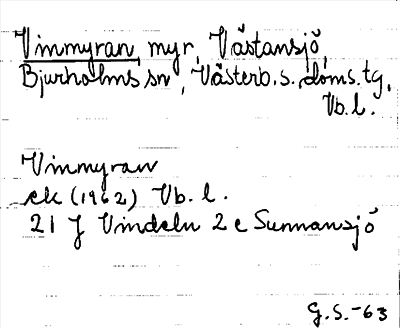 Vimmyran, myr, Västansjö,
Bjurholms sn, Västerb. s. doms. tg,
Vb. l.
Vimmyran
ek (1962) Vb. l.
21 J Vindeln 2 c Sunnansjö
G.S.-63